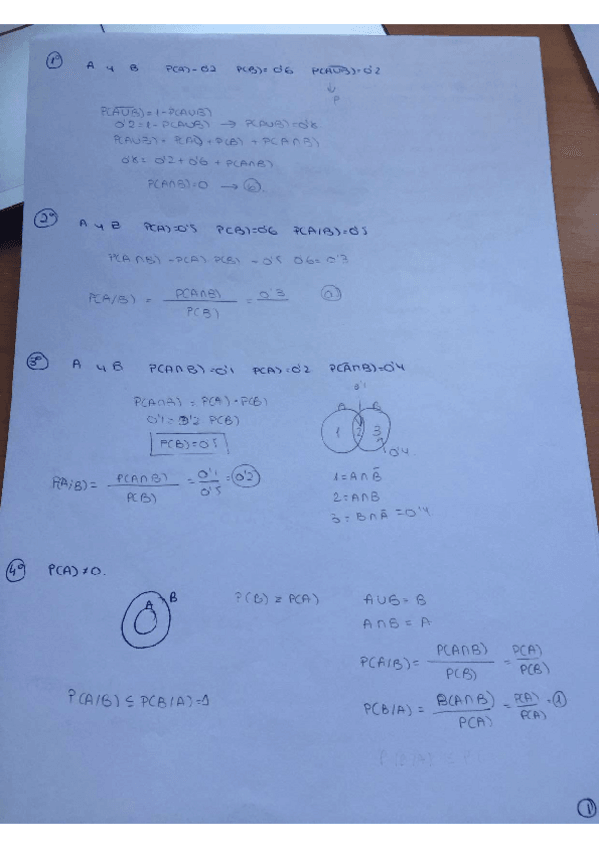 1º A y B P(A)=0'2 P(B)=0'6 P(A̅U̅B̅)=0'2
↓
P(A̅U̅B̅)=1-P(AUB)
0'2=1-P(AUB) → P(AUB)=0'8
P(AUB)= P(A)+P(B)+P(A∩B)
0'8= 0'2+0'6+P(A∩B)
P(A∩B)=0 →
2º A y B P(A)=0'5 P(B)=0'6 P(A/B)=0'5
P(A∩B)=P(A) P(B) = 0'5 0'6=0'3
P(A/B) = P(A∩B) / P(B) = 0'3 a)
3º A y B P(A∩B)=0'1 P(A)=0'2 P(A̅∩B)=0'4
P(A∩B) = P(A)·P(B)
0'1= 0'2 P(B)
P(B)=0'5
P(A/B)= P(A∩B) / P(B) = 0'1 / 0'5 = 0'2
0'1
A B
1 2 3
0'4
1=A∩B̅
2=A∩B
3=B∩A̅=0'4
4º P(A)≠0.
A B
P(B) ≥ P(A)
AUB=B
A∩B=A
P(A/B)= P(A∩B) / P(B) = P(A) / P(B)
P(A/B) ≤ P(B/A)=1
P(B/A) = P(A∩B) / P(A) = P(A) / P(A) = 1
1